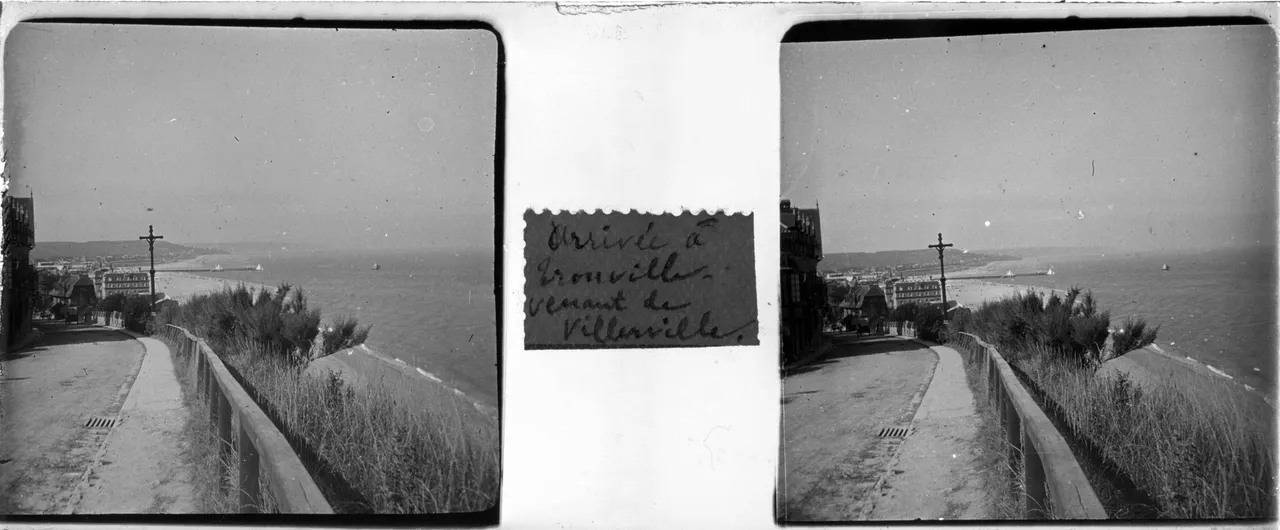 Arrivée à
Trouville.
venant de
Villerville.